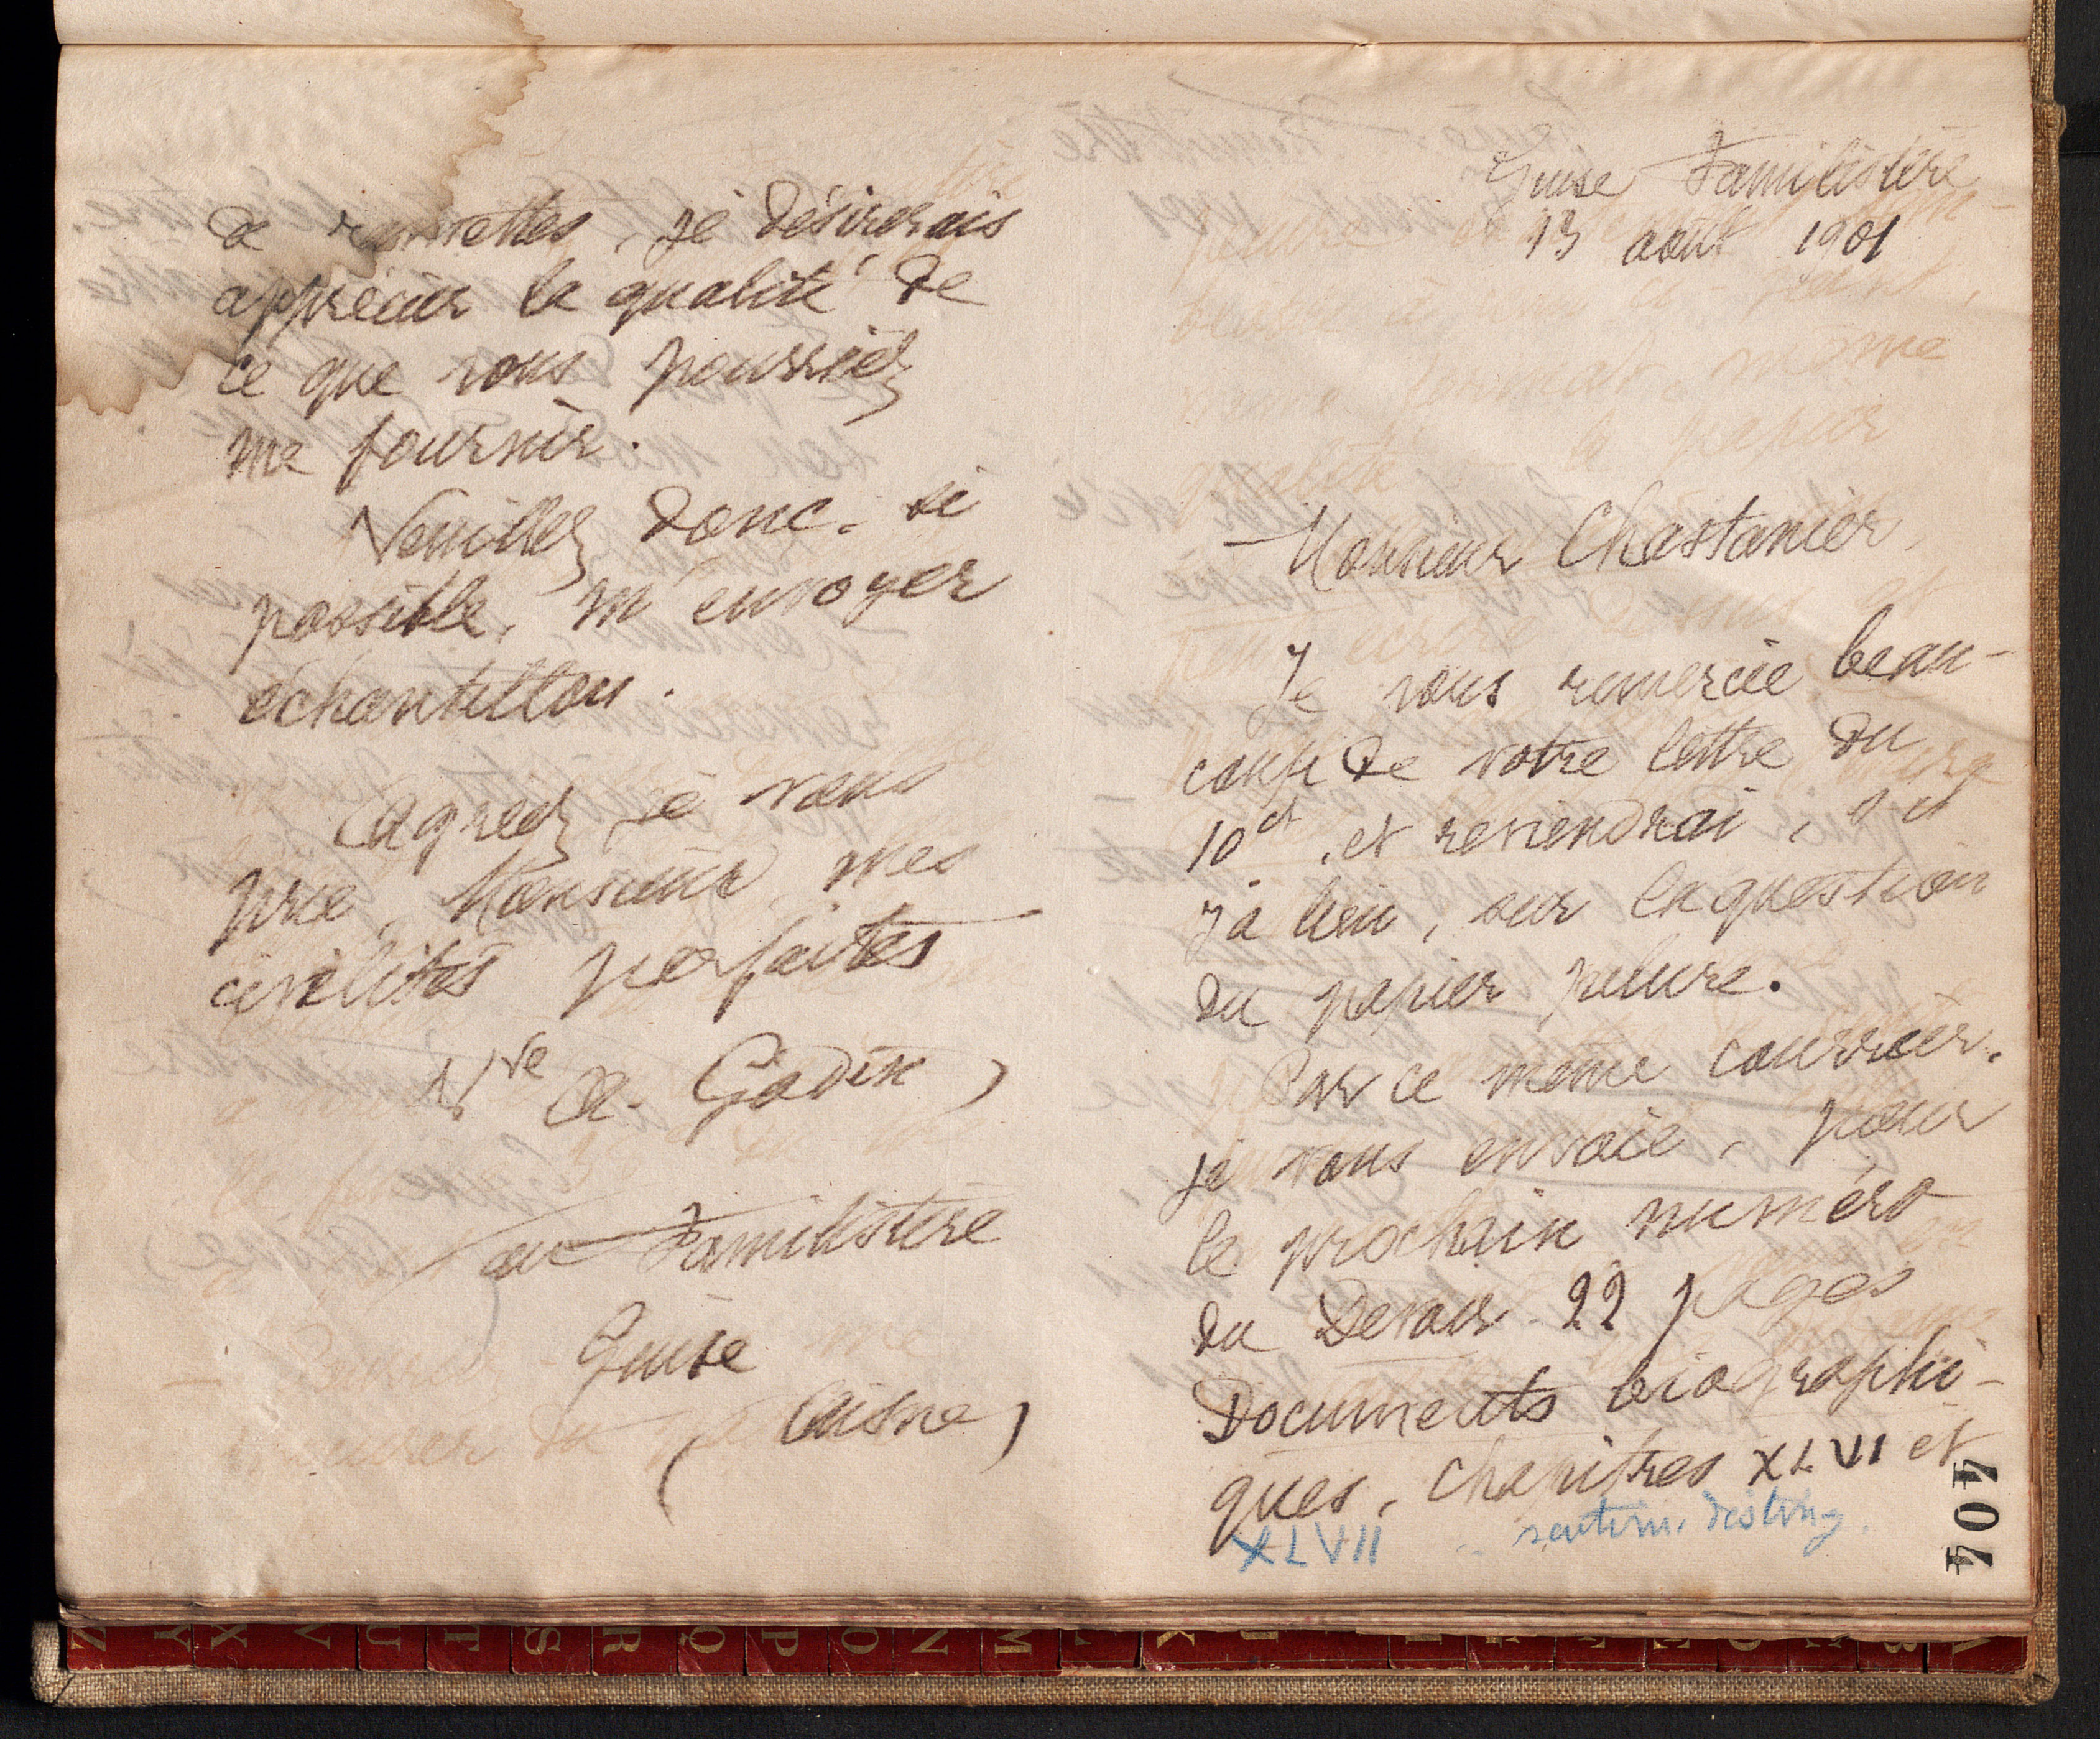 de ramettes, je désirerais
apprécier la qualité de
ce que vous pourriez
me fournir.
Veuillez donc, si
possible, m'envoyer
échantillon.
Agréez, je vous
prie, Monsieur, mes
civilités parfaites
Vve A. Godin
au Familistère
Guise
(Aisne)
Guise Familistère
13 août 1901
Monsieur Chastanier,
Je vous remercie beau-
coup de votre lettre du
10 ct, et reviendrai, s'il
y a lieu, sur la question
du papier pelure.
Par ce même courrier,
je vous envoie, pour
le prochain numéro
du Devoir 22 pages
Documents biographi-
ques, chapitres XLVI et
XLVII sentim. disting.
404
Z Y X V U T S R Q P O N M L K